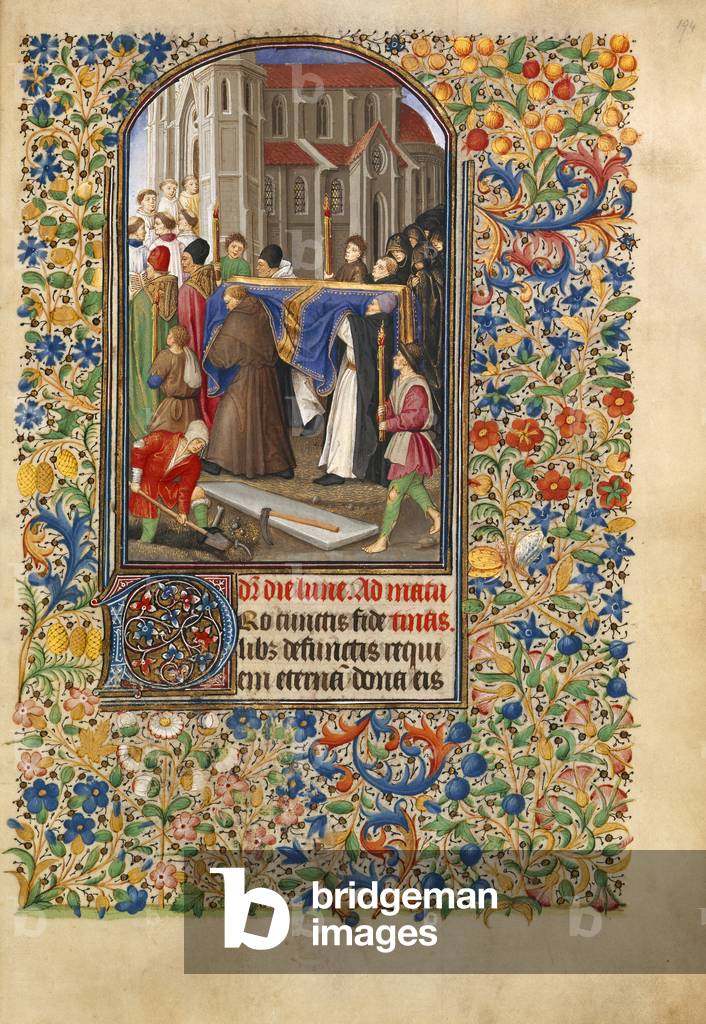 194
Dr̃ die lune. Ad matu
PRo cunctis fide tinas.
libꝫ defunctis requi
em eternã dona eis
bridgeman
images